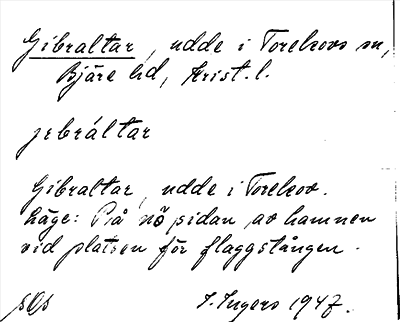 Gibraltar, udde i Torekovs sn,
Bjäre hd, Krist. l.
jebráltar
Gibraltar, udde i Torekov.
Läge: På nö sidan av hamnen
vid platsen för flaggstången.
I. Ingers 1947.